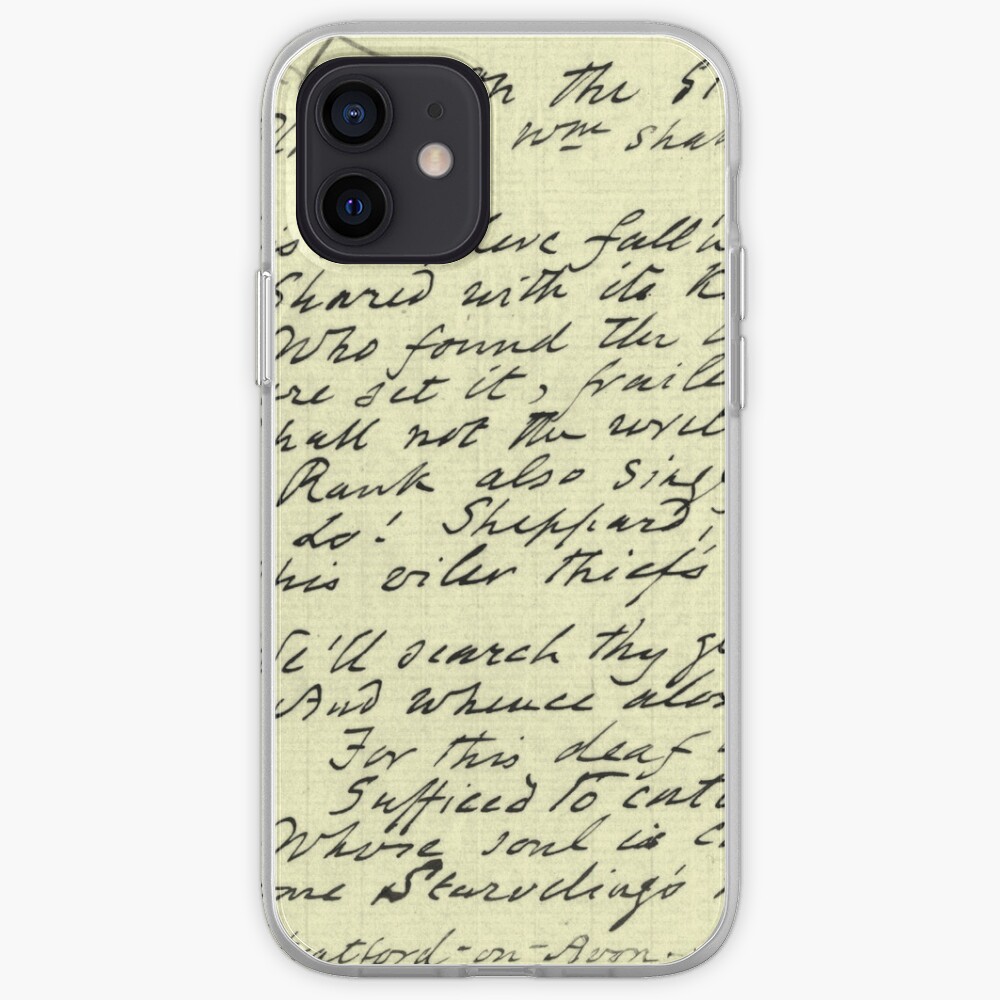 the
Wm Sha
fall'n
Shared with its K
Who found the
ere set it, fraile
hall not the
Rank also Sing
Lo! Sheppard,
his viler thief's
We'll search thy g
And whence alo
For this deaf
Sufficed to
Whose soul is
one Starveling's
tratford-on-Avon.